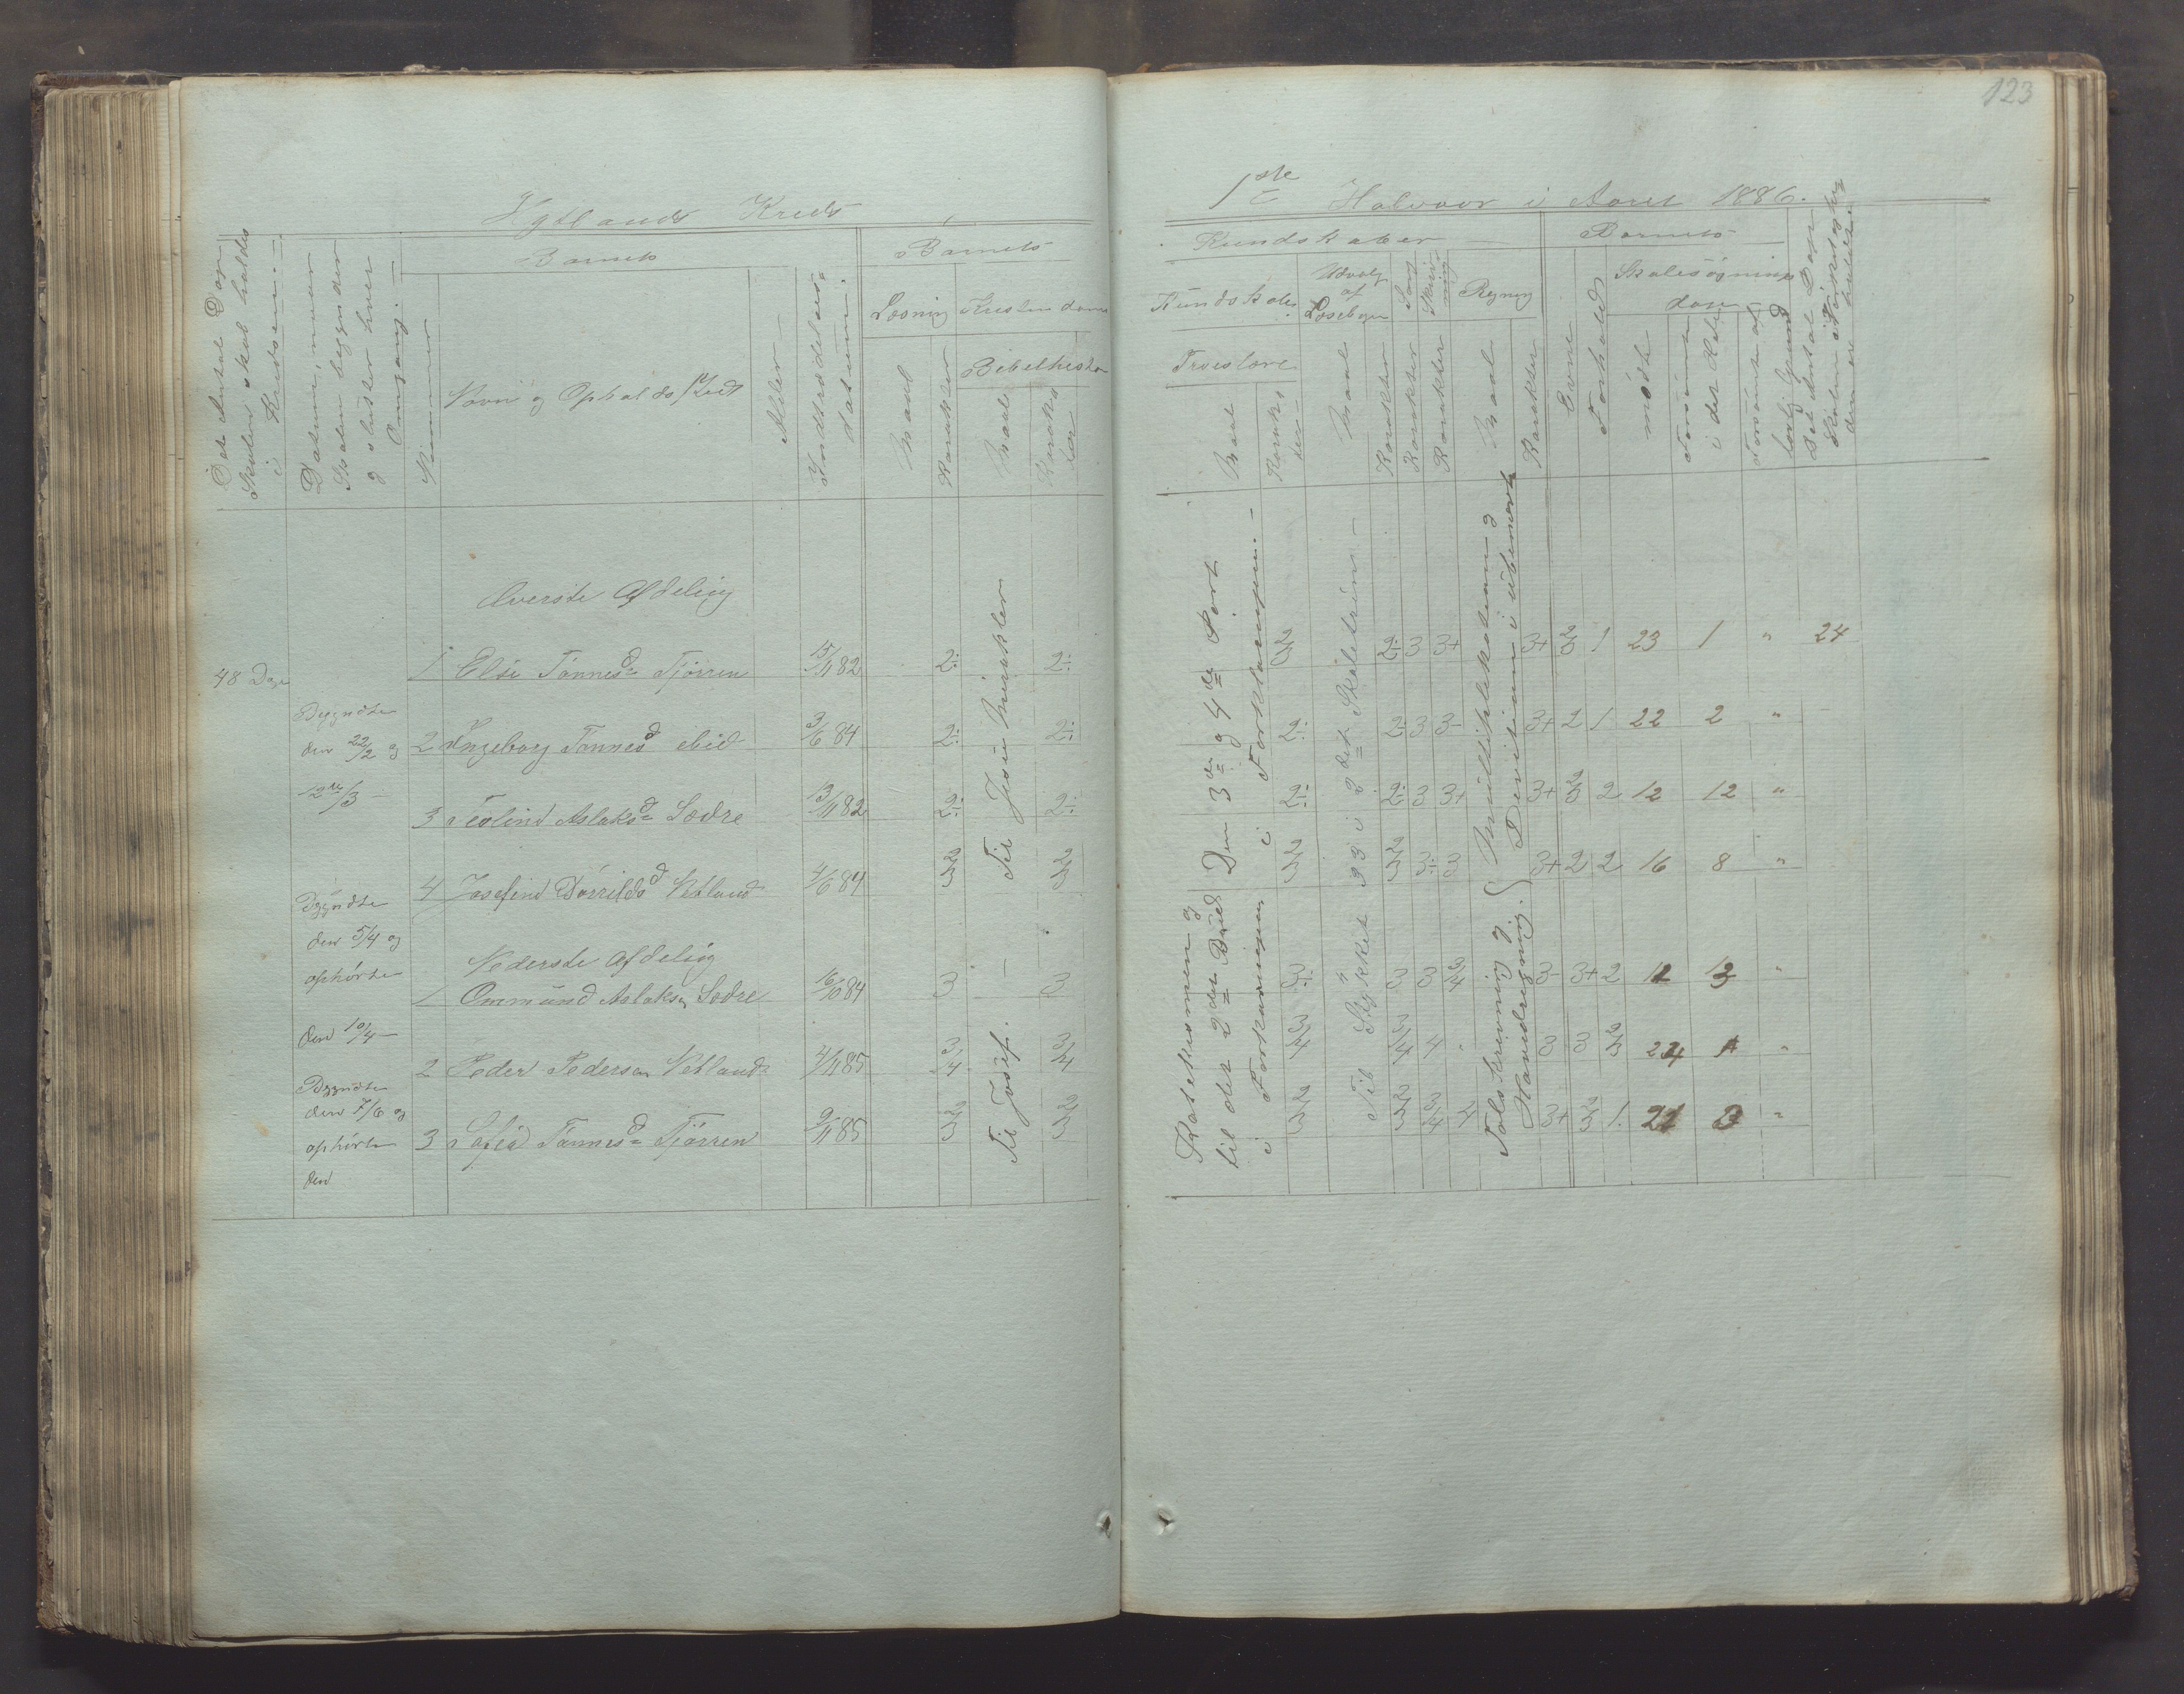 123
Kreds
1ste Halvaar i Aaret 1886.
Det Antal Dage
Skolen skal holdes
i Kredsen. —
Datum, naar
Skolen begynder
og slutter hver
Omgang. —
Nummer
Barnets
Navn og Opholdssted
Alder
Indtrædelses-
datum.
Barnets
Læsning
Maal
Karakter
Kristendoms
Bibelhistor
Maal
Karak-
ter
Kundskaber
Kundskaber
Troeslære
Maal
Karak-
ter
Udvalg
af
Læsebogen
Maal
Karakter
Sang
Karakter
Skriv-
ning
Karakter
Regning
Maal
Karakter
Barnets
Evne
Forhold
Skolesøgnings
dage
mødte
Forsømte
i det Hele
Forsømte af
lovlig Grund
Det Antal Dage
Skolen i
den er holdt
48 Dage
Begyndte
den 22/2 og
12te/3 —
Begyndte
den 5/4 og
ophørte
den 10/4 —
Begyndte
den 7/6 og
ophørte
den
Øverste Afdeling
1 Else Tønnesd Tjørren 15/11 82 2÷ 2÷ 2/3 2÷ 3 3+ 3+ 2/3 1 23 1 " 24
2 Ingeborg Tønnesd ibid 3/6 84 2÷ 2÷ 2÷ 2÷ 3 3- 3+ 2 1 22 2 "
3 Teoline Aslaksd Sædre 13/11 82 2÷ 2÷ 2÷ 2÷ 3 3+ 3+ 2/3 2 12 12 "
4 Josefine 4/6 84 2/3 2/3 2/3 2/3 3÷ 3 3+ 2 2 16 8 "
Nederste Afdeling
1 Ommund Aslaksen Sædre 16/10 84 3 3 3÷ 3 3 3/4 3- 3+ 2 "
2 Peder Pedersen 4/11 85 3/4 3/4 3/4 3/4 4 3 3 2/3 "
3 Sofie Tønnesd Tjørren 9/11 85 2/3 2/3 2/3 2/3 3/4 4 3+ 2/3 1. "
Til Jesu Mirakler
Til Josef. —
Den 3die og 4de Part
i Forklaringen. —
Katekismen og
til det 2det Bud
i Forklaringen
Til Stykket 33 i 2det Skoletrin —
Multiplikation og
Division i ubenævnt
Talskrivning og
Hovedregning.